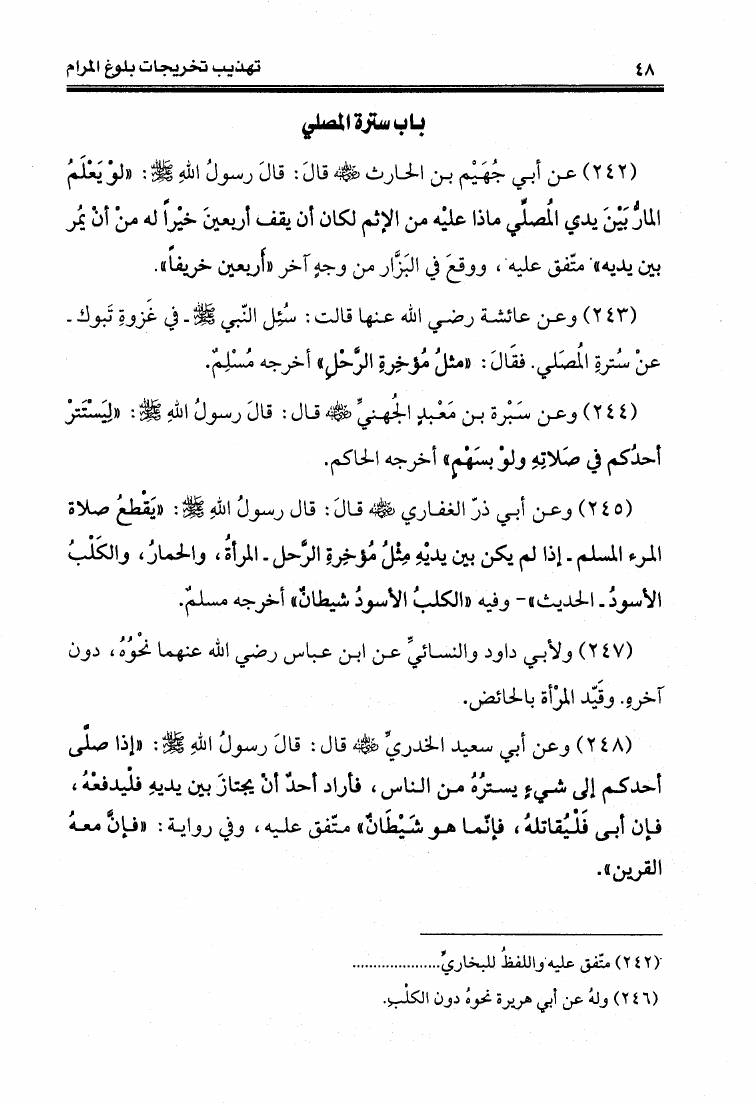 ٤٨ تهذيب تخريجات بلوغ المرام
باب سترة المصلي
(٢٤٢) عن أبي جُهَيْم بن الحارث ﷺ قالَ: قالَ رسولُ اللهِ ﷺ: «لوْ يَعْلَمُ
المارُّ بَيْنَ يدي المُصلِّي ماذا عليْه من الإثم لكان أن يقف أربعينَ خيْراً له منْ أنْ يمُر
بين يديه» متّفق عليه، ووقعَ في البَزَّار من وجهٍ آخر «أَربعين خريفاً».
(٢٤٣) وعن عائشة رضي الله عنها قالت: سُئِل النّبي ﷺ ـ في غَزوةِ تَبوك ـ
عنْ سُترةِ المُصَلي. فقَالَ: «مثلُ مُؤخِرةِ الرَّحْلِ» أخرجه مُسْلِمٌ.
(٢٤٤) وعن سَبْرة بن مَعْبدٍ الجُهنيِّ رضي الله عنه قال: قالَ رسولُ اللهِ ﷺ: «لِيَسْتَترْ
أحدُكم في صَلاتِهِ ولوْ بسَهْمٍ» أخرجه الحاكم.
(٢٤٥) وعن أبي ذرّ الغفاري رضي الله عنه قالَ: قال رسولُ اللهِ ﷺ: «يَقْطعُ صلاة
المرء المسلم ـ إذا لم يكن بين يديْهِ مِثْلُ مُؤخِرةِ الرَّحل ـ المرأةُ، والحمارُ، والكَلْبُ
الأسودُ ـ الحديث» - وفيه «الكلبُ الأسودُ شيطانٌ» أخرجه مسلمٌ.
(٢٤٧) ولأبي داود والنسائيِّ عن ابن عباس رضي الله عنهما نحْوُهُ، دون
آخرهِ. وقيّد المرْأة بالحائض.
(٢٤٨) وعن أبي سعيد الخدريِّ رضي الله عنه قال: قالَ رسولُ اللهِ ﷺ: «إذا صلَّى
أحدكم إلى شيءٍ يسترُهُ من الناس، فأراد أحدٌ أنْ يجتازَ بين يديهِ فلْيدفعْهُ،
فإن أبى فَلْيُقاتلهُ، فإنّما هو شَيْطَانٌ» متّفق عليه، وفي رواية: «فإنَّ معهُ
القرين».
(٢٤٢) متّفق عليه واللفظُ للبخاريِّ.....................
(٢٤٦) ولهُ عن أبي هريرة نحوهُ دون الكلْبِ.